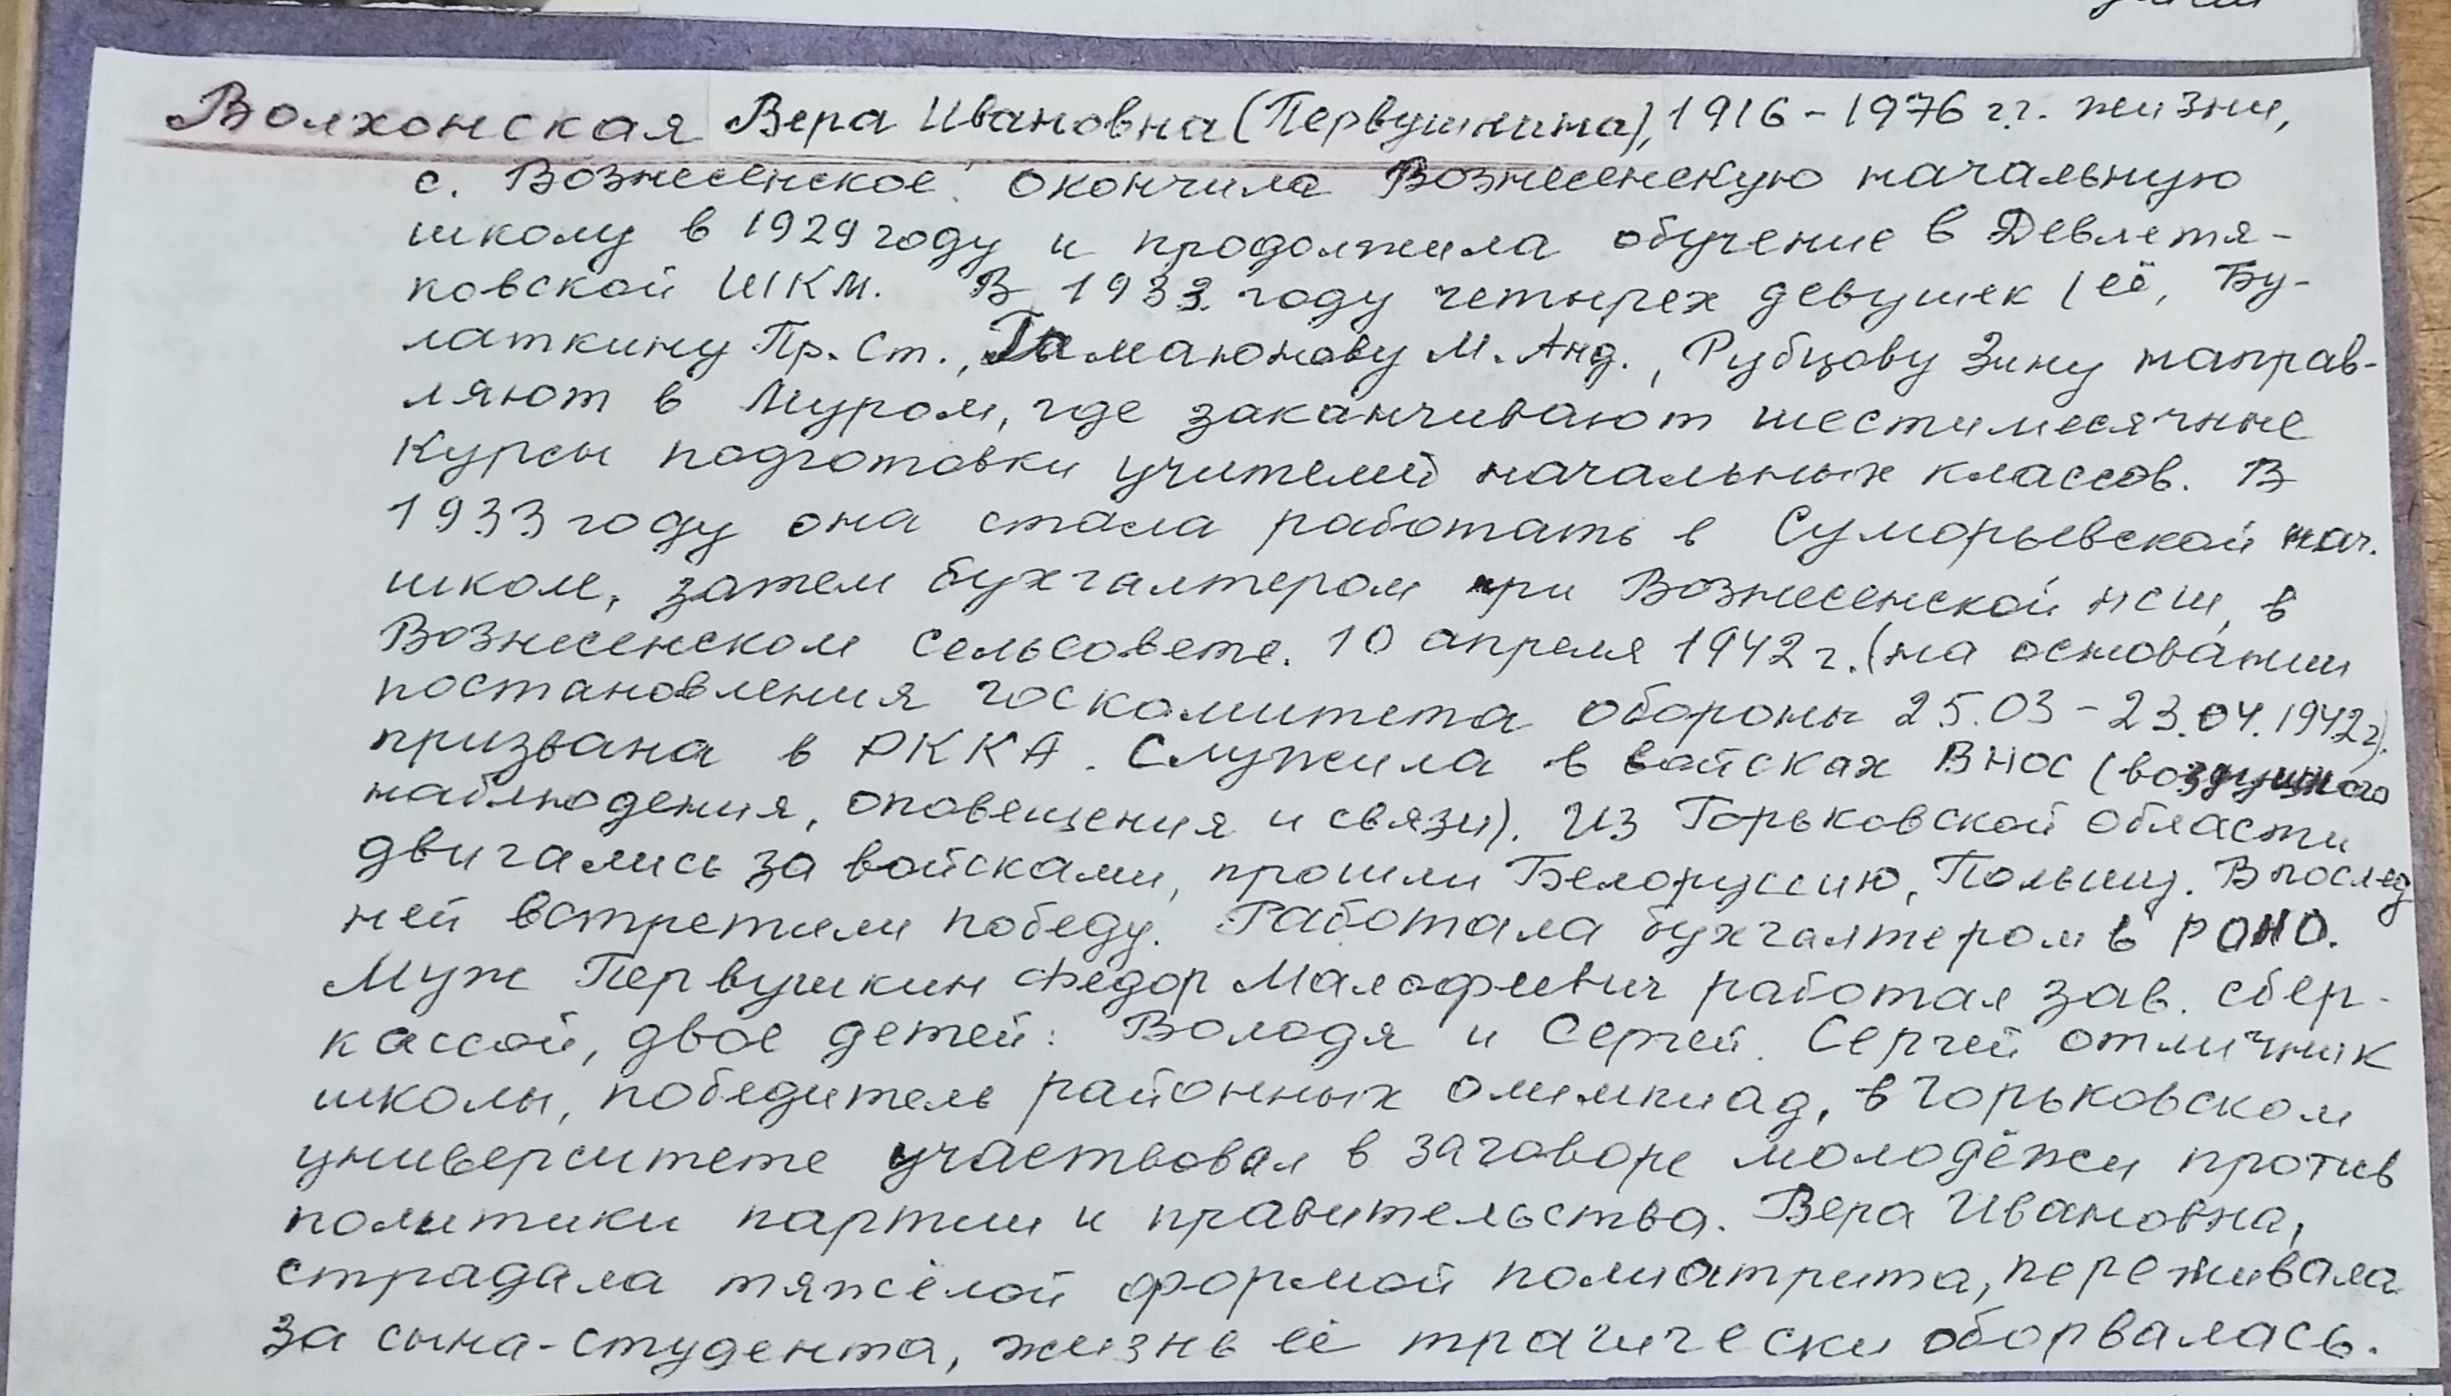 Волхонская Вера Ивановна (Первушкина), 1916 - 1976 г.г. жизни,
с. Вознесенское. Окончила Вознесенскую начальную
школу в 1929 году и продолжила обучение в Девлетя-
ковской ШКМ. В 1933 году четырех девушек (её, Бу-
латкину Пр. Ст., Гамаюнову М. Анд., Рубцову Зину направ-
ляют в Муром, где заканчивают шестимесячные
курсы подготовки учителей начальных классов. В
1933 году она стала работать в Суморьевской нач.
школе, затем бухгалтером при Вознесенской НСШ, в
Вознесенском сельсовете. 10 апреля 1942 г. (на основании
постановления госкомитета обороны 25.03 - 23.04.1942 г).
призвана в РККА. Служила в войсках ВНОС (воздушного
наблюдения, оповещения и связи). Из Горьковской области
двигались за войсками, прошли Белоруссию, Польшу. В послед
ней встретили победу. Работала бухгалтером в РОНО.
Муж Первушкин Федор Малофеевич работал зав. сбер-
кассой, двое детей: Володя и Сергей. Сергей отличник
школы, победитель районных олимпиад, в Горьковском
университете участвовал в заговоре молодёжи против
политики партии и правительства. Вера Ивановна,
страдала тяжёлой формой полиатрита, переживала
за сына-студента, жизнь её трагически оборвалась.